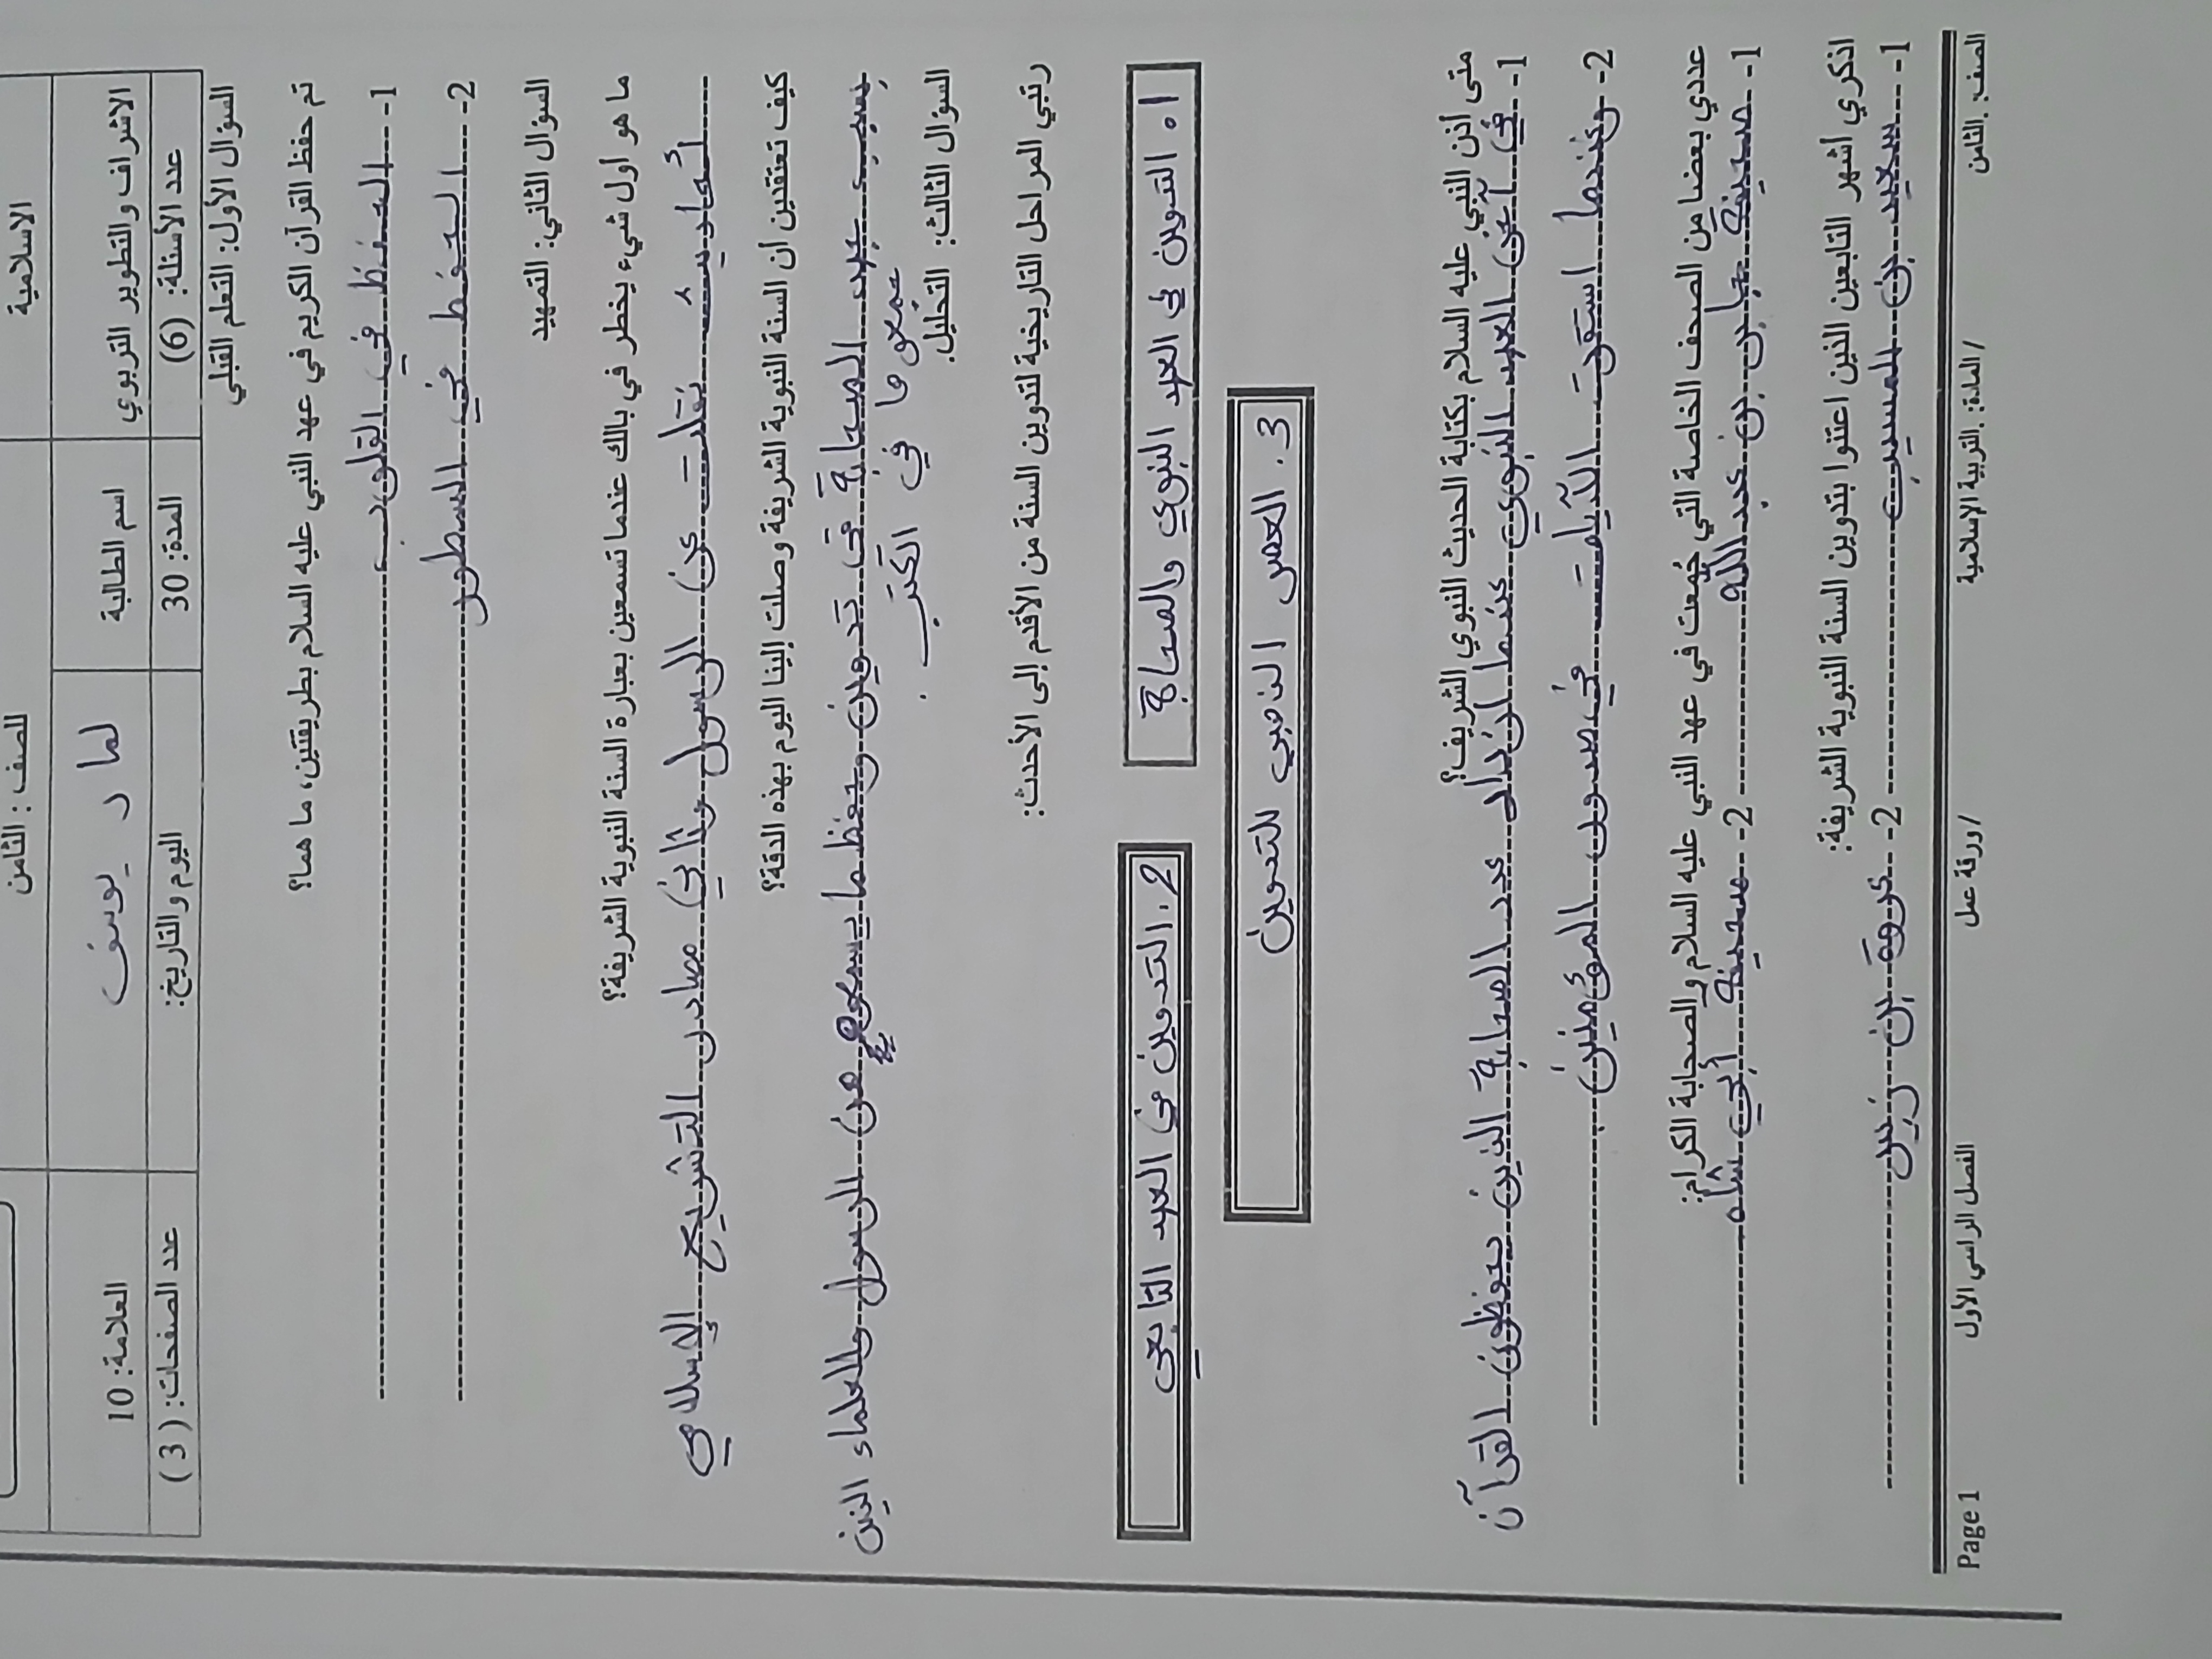 الاسلامية
للصف : الثامن
الاشراف والتطوير التربوي
اسم الطالبة
لما د يوسف
العلامة: 10
عدد الأسئلة: (6)
المدة: 30
اليوم والتاريخ:
عدد الصفحات: ( 3 )
السؤال الأول: التعلم القبلي
تم حفظ القرآن الكريم في عهد النبي عليه السلام بطريقتين، ما هما؟
1- الحفظ في القلوب
2- الحفظ في السطور
السؤال الثاني: التمهيد
ما هو أول شيء يخطر في بالك عندما تسمعين بعبارة السنة النبوية الشريفة؟
أحاديث نقلت عن الرسول وثاني مصادر التشريع الإسلامي
كيف تعتقدين أن السنة النبوية الشريفة وصلت إلينا اليوم بهذه الدقة؟
بسبب جهد الصحابة في تدوين وحفظ ما يسمعوه من الرسول والعلماء الذين
جمعوها في الكتب.
السؤال الثالث: التحليل.
رتبي المراحل التاريخية لتدوين السنة من الأقدم إلى الأحدث:
1. التدوين في العهد النبوي والصحابة
2. التدوين في العهد التابعي
3. العصر الذهبي للتدوين
متى أذن النبي عليه السلام بكتابة الحديث النبوي الشريف؟
1- في آخر العهد النبوي عندما ازداد عدد الصحابة الذين يحفظون القرآن
2- وعندما استقرت الآيات في صدور المؤمنين.
عددي بعضا من الصحف الخاصة التي جُمعت في عهد النبي عليه السلام والصحابة الكرام:
1- صحيفة جابر بن عبد الله
2- صحيفة أبي شاه
اذكري أشهر التابعين الذين اعتنوا بتدوين السنة النبوية الشريفة:
1- سعيد بن المسيب
2- عروة بن زبير
الصف: الثامن / المادة: التربية الإسلامية / ورقة عمل الفصل الراسي الأول Page 1